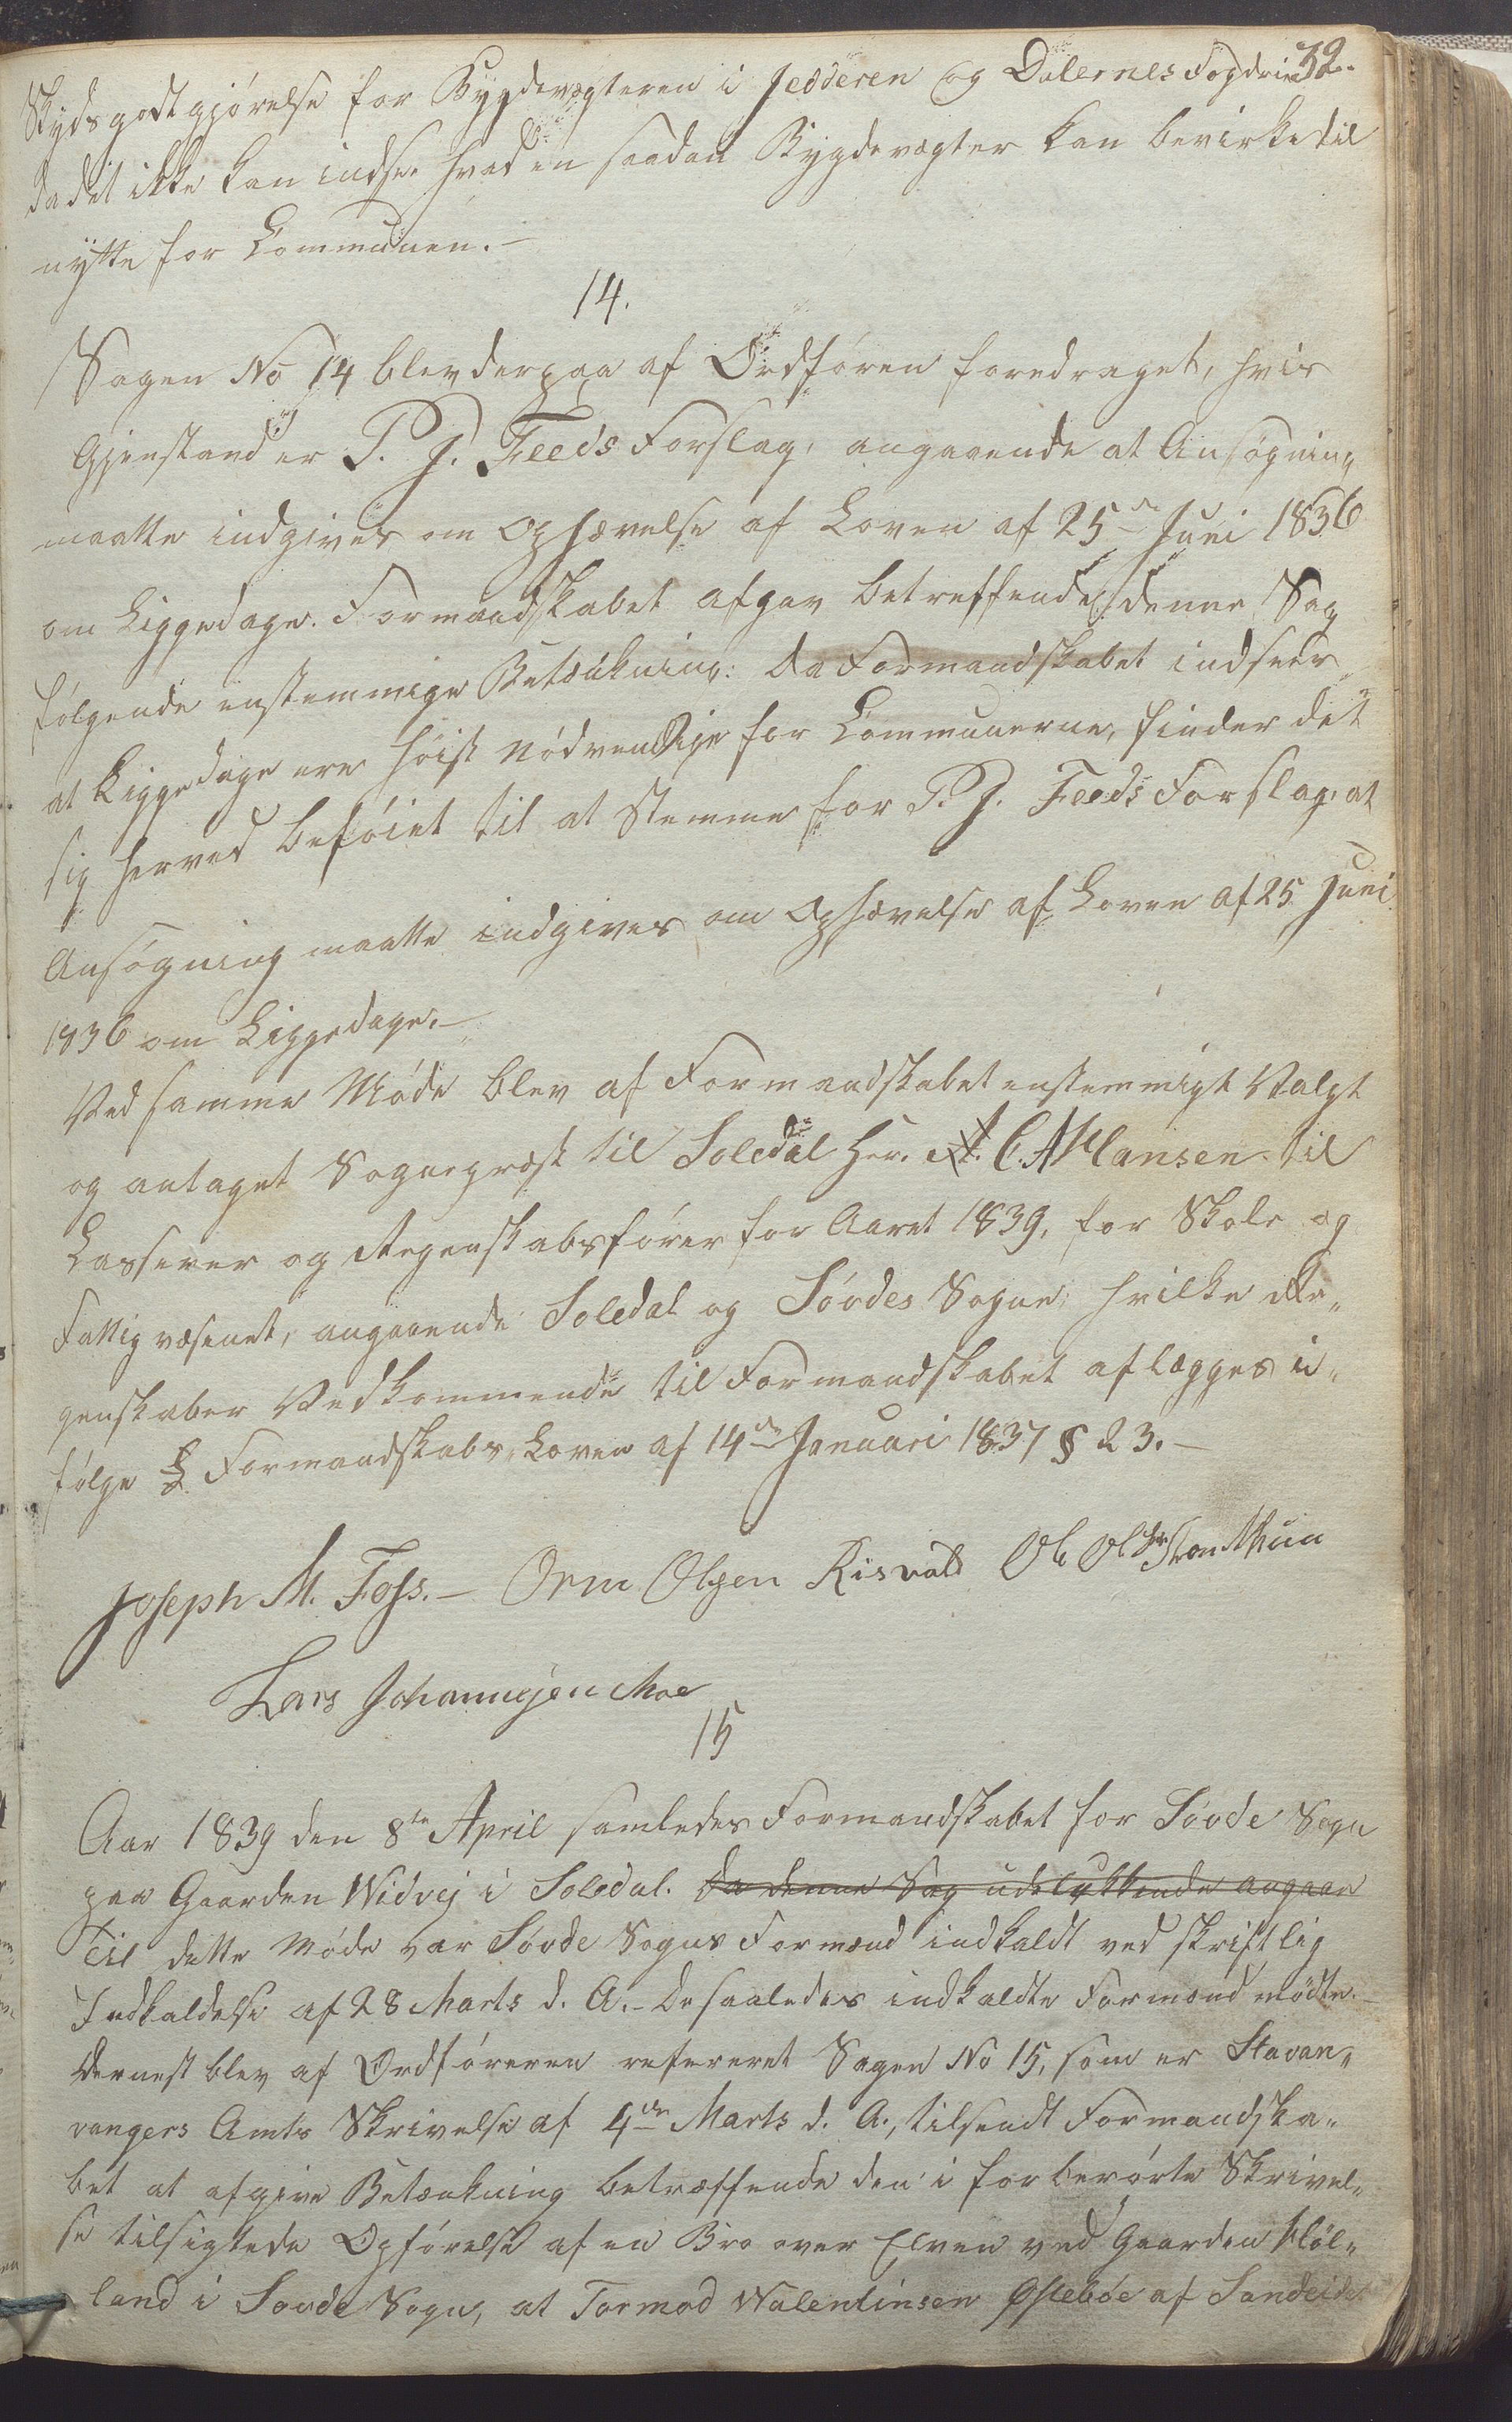 32.
Skydsgodtgjørelse for Bygdevægteren i Jedderen og Dalernes Fogdri
da det ikke kan indsee hvad en saadan Bygdevægter kan bevirke til
nytte for Communen.-
14.
Sagen No 14 blev derpaa af Ordføren foredraget, hvis
Gjenstand er P. J. Feeds Forslag, angaaende at Ansøgning
maatte indgives om Ophævelse af Loven af 25de Juni 1836
om Liggedage. Formandskabet afgav betreffende denne Sag
følgende enstemmige Betænkning: Da Formandskabet indseer
at Liggedage ere høist nødvendige for Communerne, finder det
sig herved beføiet til at stemme for P. J. Feeds Forslag, at
Ansøgning maatte indgives om Ophævelse af Loven af 25 Juni
1836 om Liggedage.-
Ved samme Møde blev af Formandskabet enstemmigt Valgt
og antaget Sognepræst til Soledal Hr. A. C. A. Hansen til
Casserer og Regenskabsfører for Aaret 1839, for Skole og
Fattigvæsenet, angaaende Soledal og Søvdes Sogne, hvilke Re„
genskaber Vedkommende til Formandskabet aflægges i„
følge Formandskabs Loven af 14de Januari 1837 § 23.-
Joseph M. Foss.- Orm Olsen Risvold Ole Ols
Lars Johannesen Moe
15
Aar 1839 den 8de April samledes Formandskabet for Søvde Sogn
paa Gaarden Widvej i Soledal. Da denne Sag udelukkende angaar
Til dette Møde var Søvde Sogns Formænd indkaldt ved skriftlig
Indkaldelse af 28 Marts d. A.- De saaledes indkaldte Formænd mødte.
Dernest blev af Ordføreren refereret Sagen No 15, som er Stavan„
vangers Amts Skrivelse af 4de Marts d. A., tilsendt Formandska„
bet at afgive Betænkning betræffende den i forberørte Skrivel„
se tilsigtede Opførelse af en Bro over Elven ved Gaarden Høl„
land i Søvde Sogn, at Tormod Walentinsen Østebøe af Sandeidet